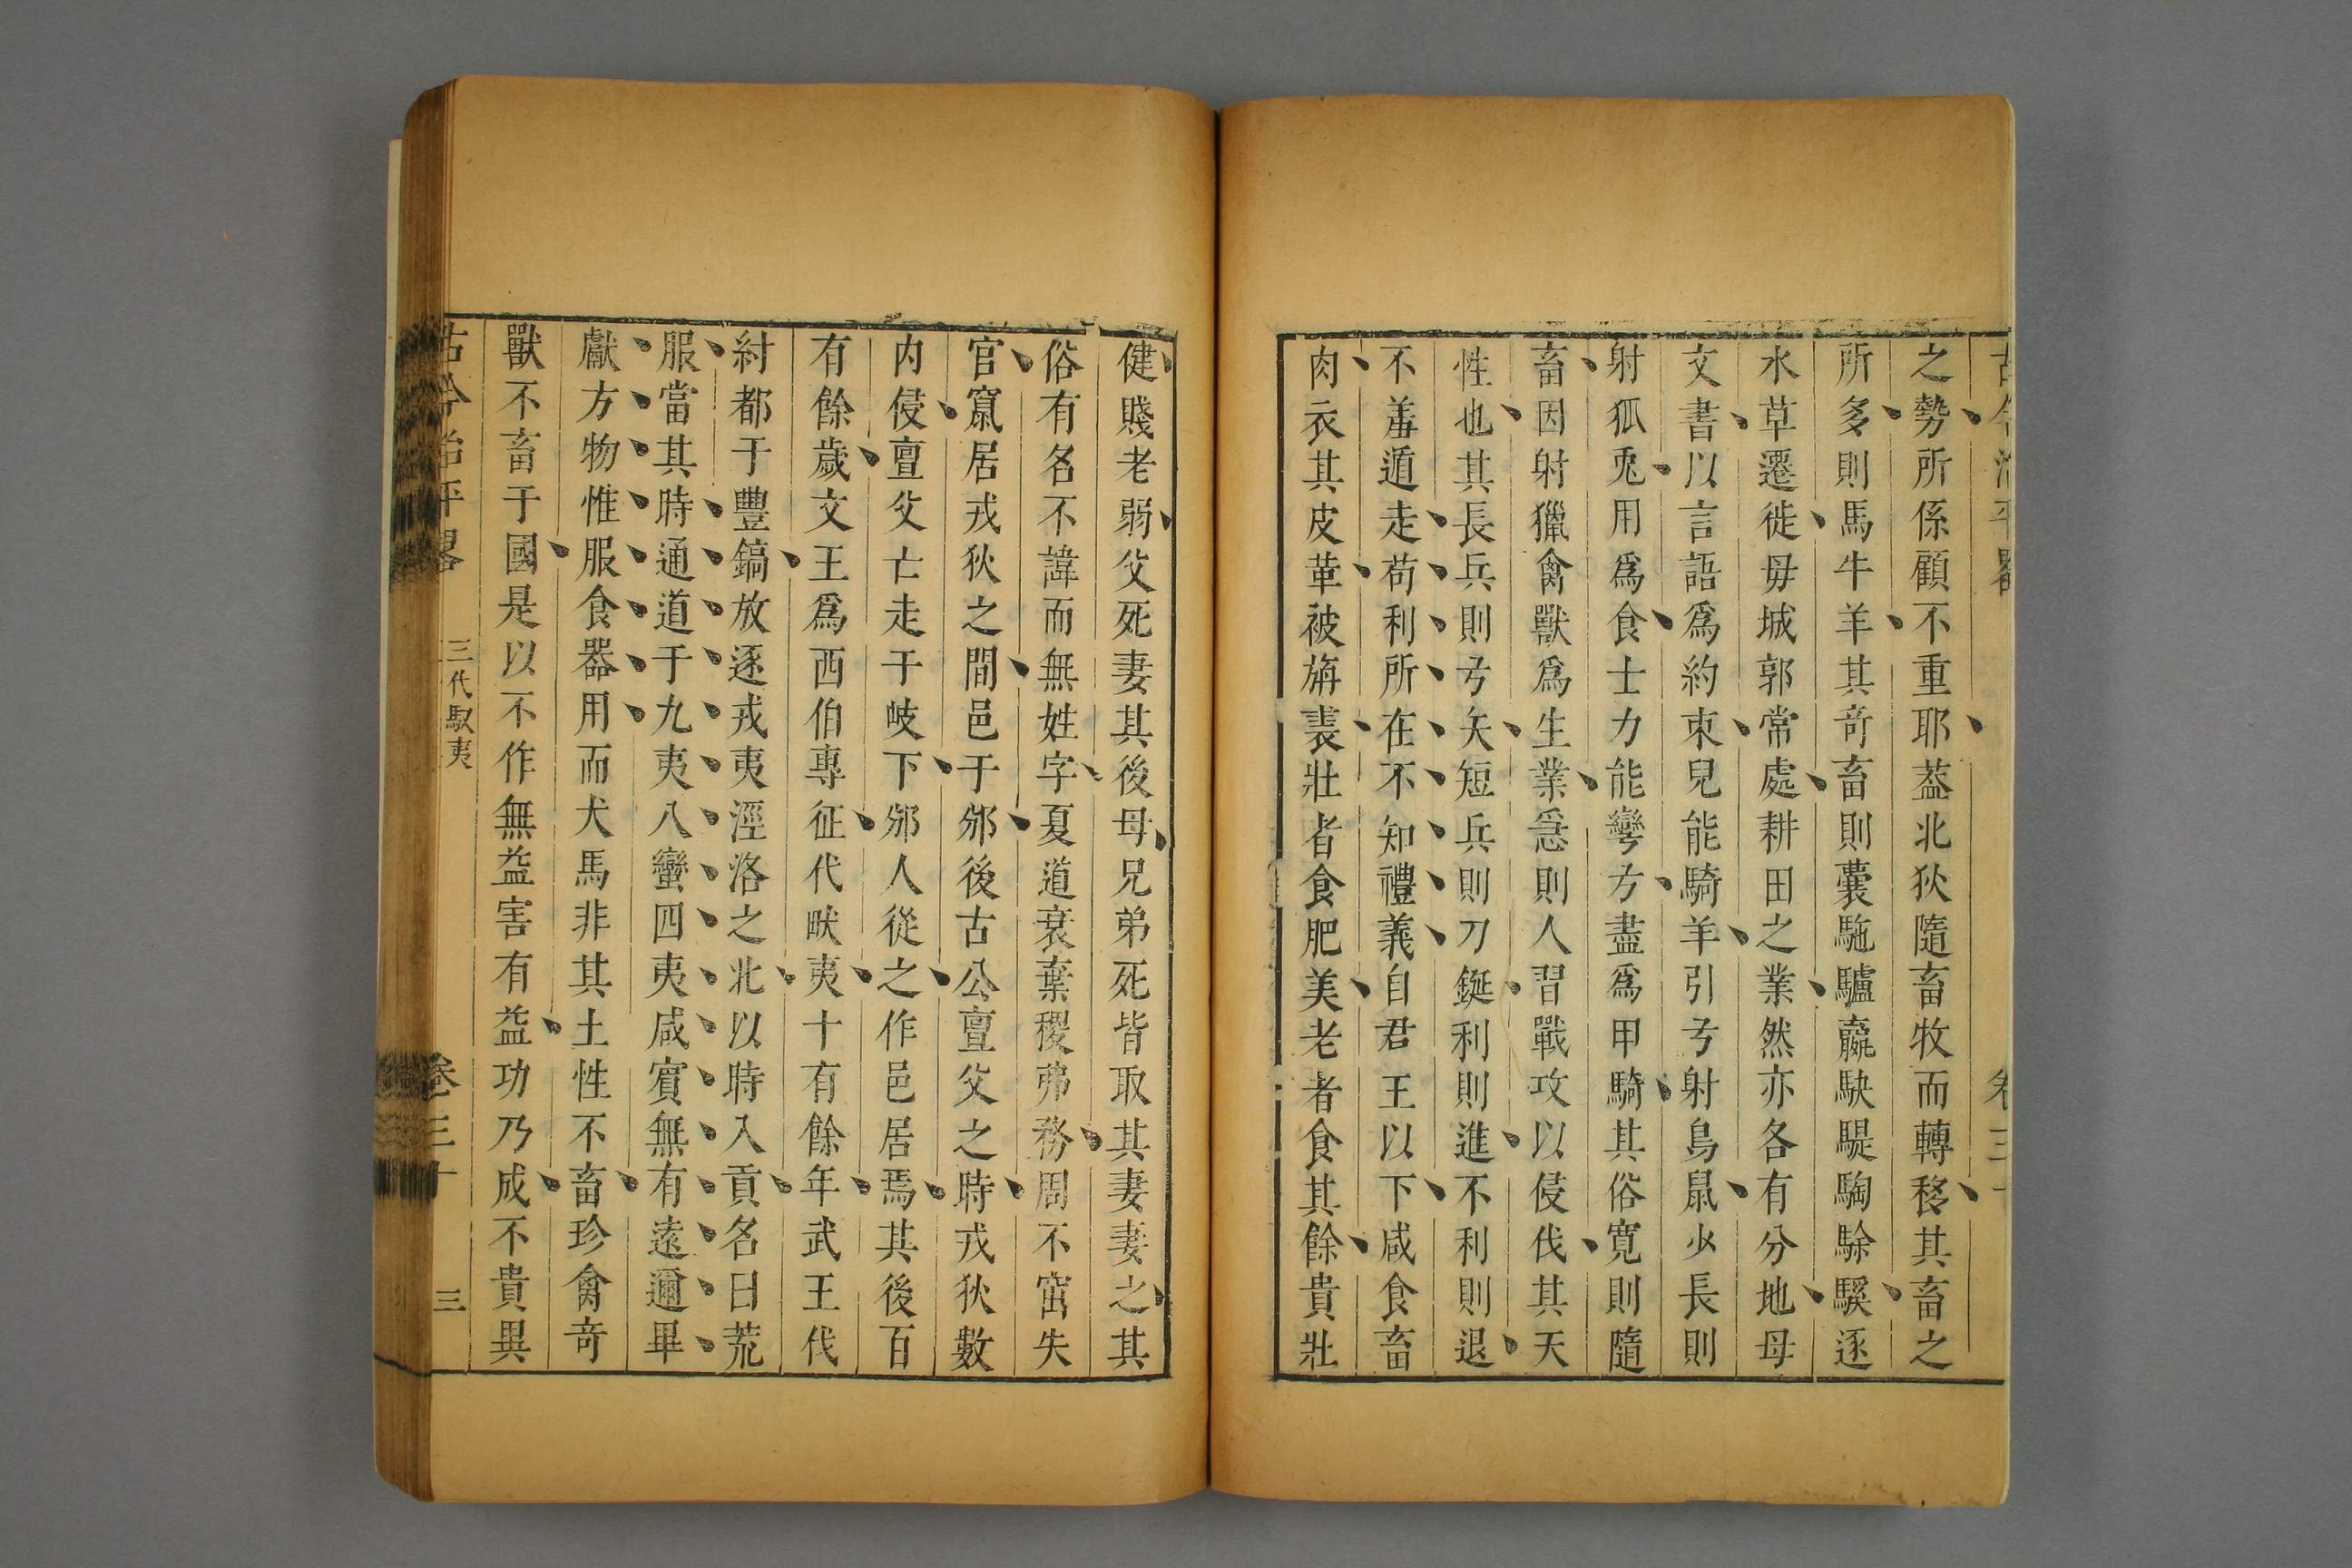 古今治平畧 卷三十
之勢所係顧不重耶葢北狄隨畜牧而轉移其畜之
所多則馬牛羊其竒畜則橐駞驢驘駃騠騊駼驒逐
水草遷徙毋城郭常處耕田之業然亦各有分地母
文書以言語爲約束兒能騎羊引弓射鳥鼠少長則
射狐兎用爲食士力能彎弓盡爲甲騎其俗寛則隨
畜因射獵禽獸爲生業急則人習戰攻以侵伐其天
性也其長兵則弓矢短兵則刀鋋利則進不利則退
不羞遁走苟利所在不知禮義自君王以下咸食畜
肉衣其皮革被旃裘壯者食肥美老者食其餘貴壯
健賤老弱父死妻其後母兄弟死皆取其妻妻之其
俗有名不諱而無姓字夏道衰棄稷弗務周不窋失
官竄居戎狄之間邑于邠後古公亶父之時戎狄數
内侵亶父亡走于岐下邠人從之作邑居焉其後百
有餘歲文王爲西伯專征代畎夷十有餘年武王伐
紂都于豐鎬放逐戎夷涇洛之北以時入貢名曰荒
服當其時通道于九夷八蠻四夷咸賔無有遠邇畢
獻方物惟服食器用而犬馬非其土性不畜珍禽竒
獸不畜于國是以不作無益害有益功乃成不貴異
古今治平畧 三代馭夷 卷三十 三